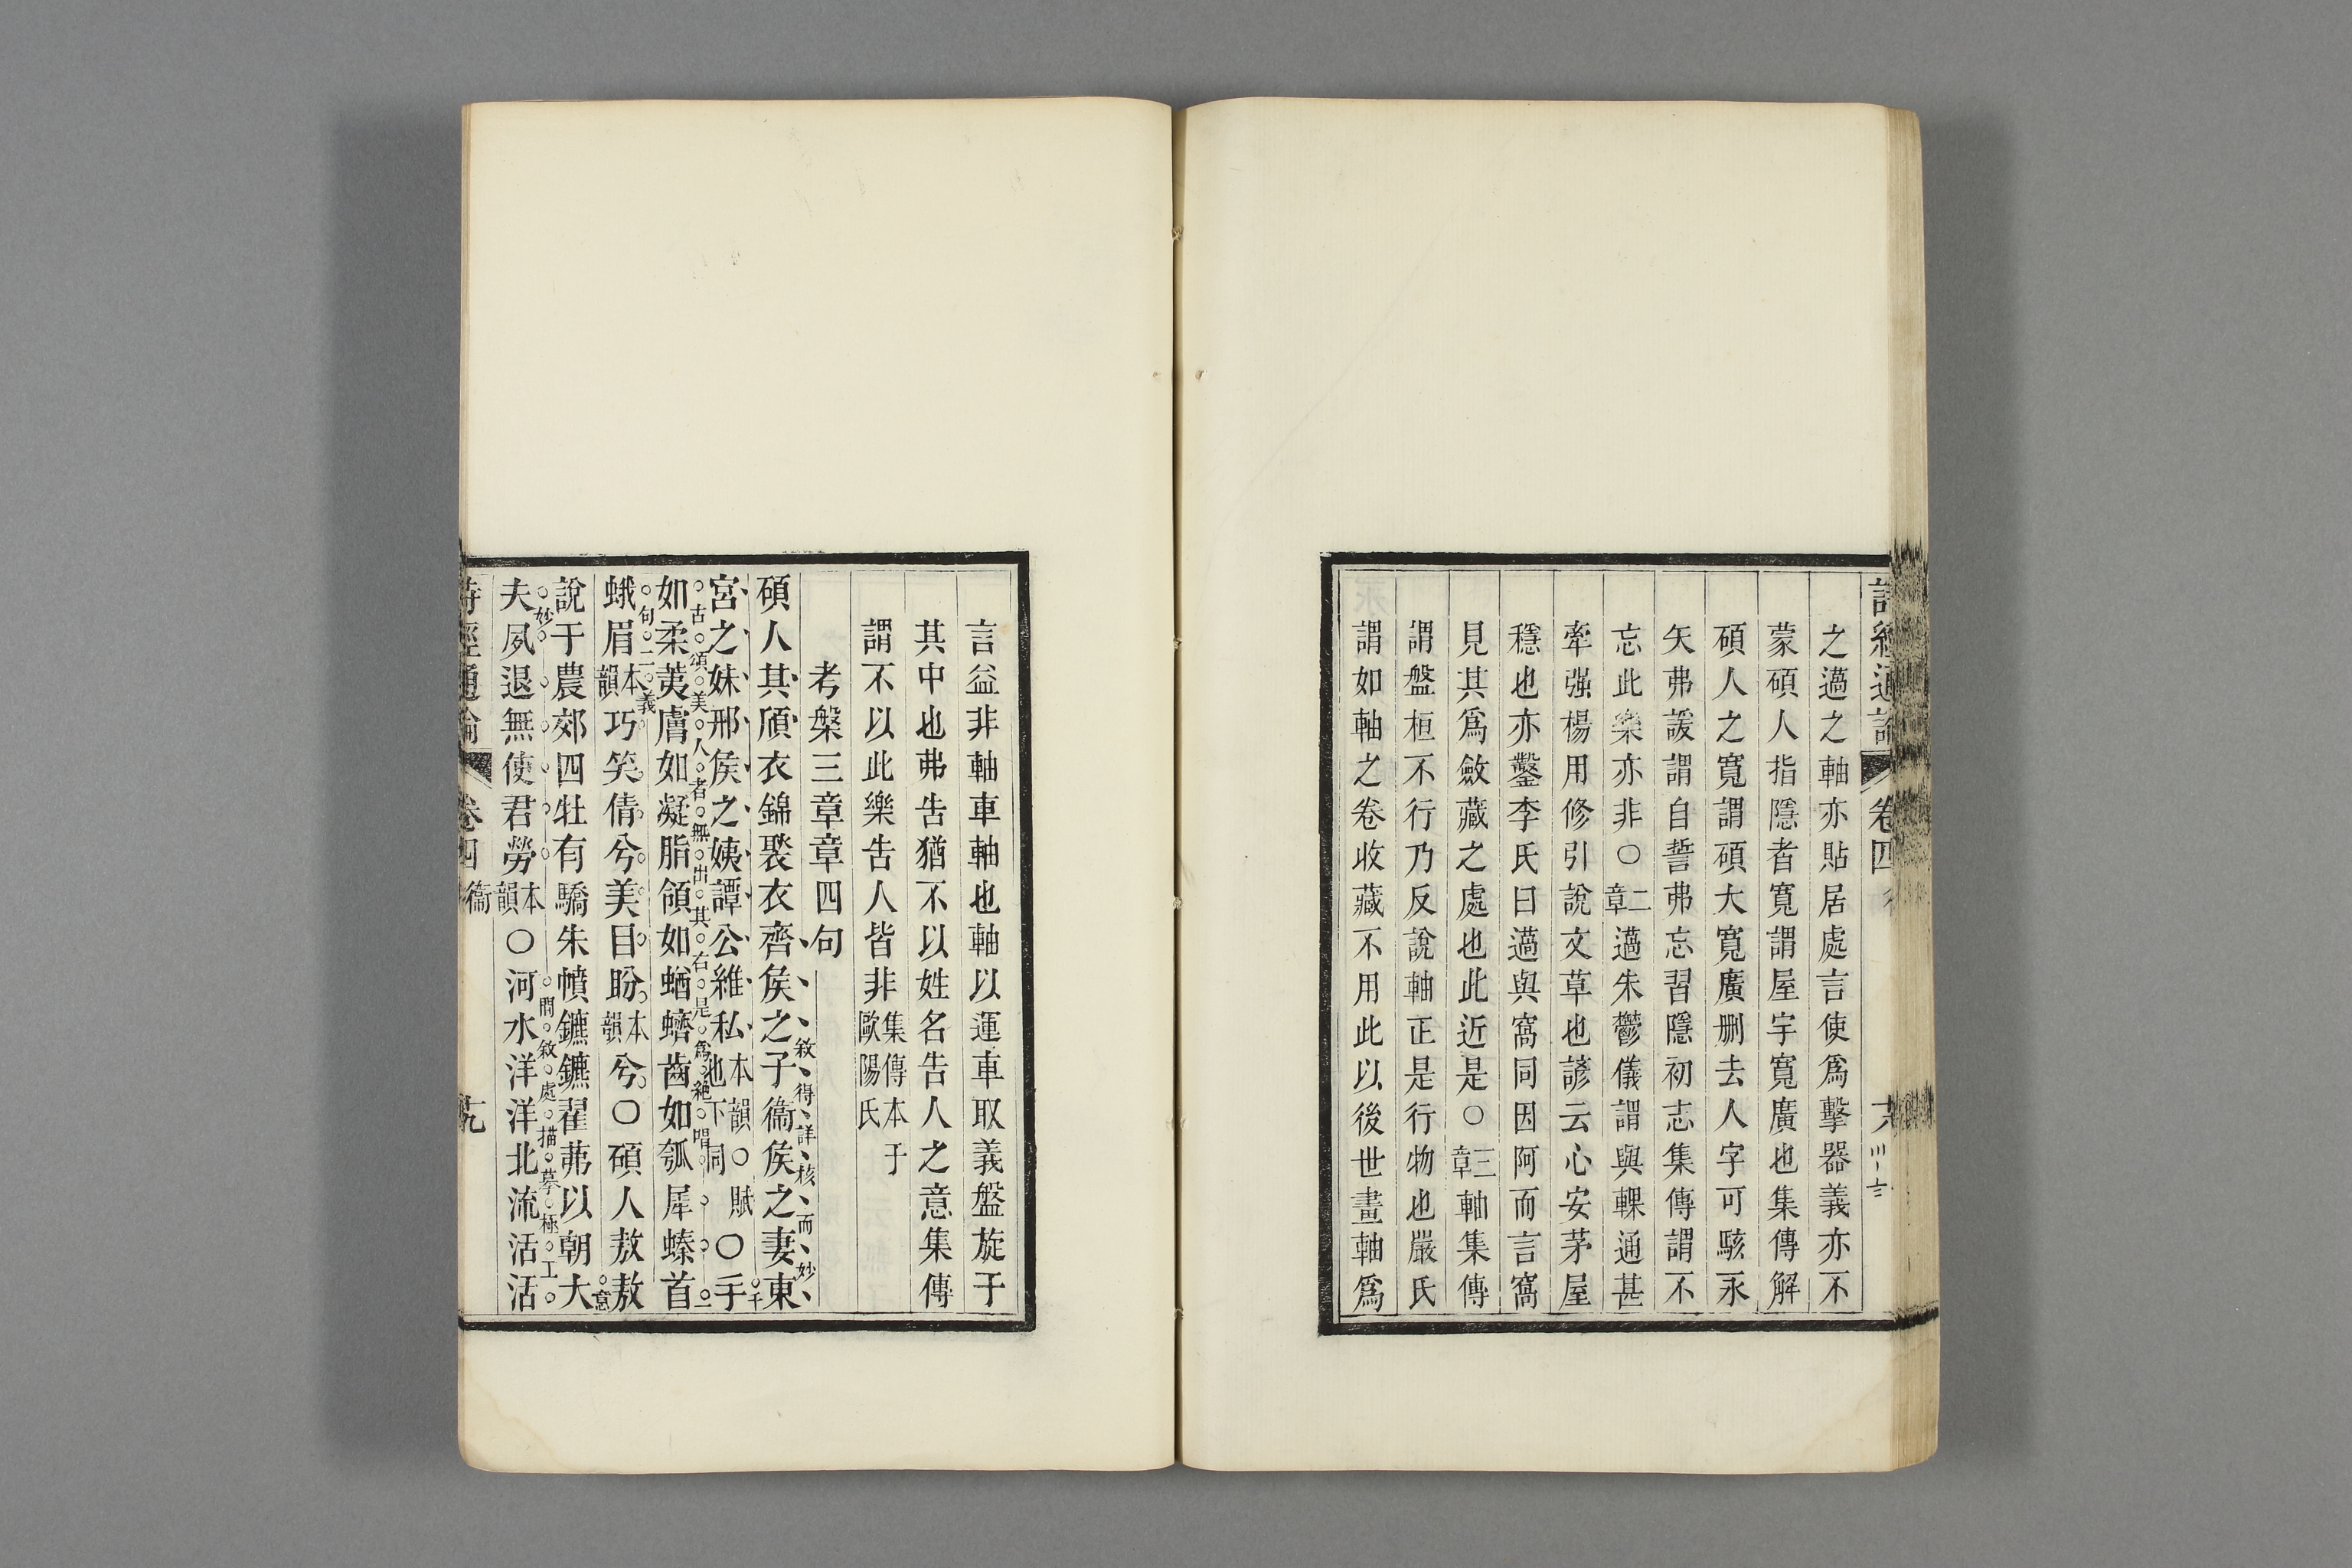 詩經通論 卷四
之薖之軸亦貼居處言使爲擊器義亦不
蒙碩人指隱者寬謂屋宇寬廣也集傳解
碩人之寬謂碩大寬廣刪去人字可駭永
矢弗諼謂自誓弗忘習隱初志集傳謂不
忘此樂亦非○二章薖朱鬱儀謂與輠通甚
牽强楊用修引說文草也諺云心安茅屋
穩也亦鑿李氏曰薖與窩同因阿而言窩
見其爲斂藏之處也此近是○三章軸集傳
謂盤桓不行乃反說軸正是行物也嚴氏
謂如軸之卷收藏不用此以後世畫軸爲
言益非軸車軸也軸以運車取義盤旋于
其中也弗告猶不以姓名告人之意集傳
謂不以此樂告人皆非集傳本于歐陽氏
考槃三章章四句
碩人其頎衣錦褧衣齊侯之子衞侯之妻東
敘得詳核而妙
宮之妹邢侯之姨譚公維私本韻○賦也下同○手
千古頌美人者無出其右是爲絶唱
如柔荑膚如凝脂領如蝤蠐齒如瓠犀螓首
二句二義
蛾眉本韻巧笑倩兮美目盼本韻兮○碩人敖敖
意妙
說于農郊四牡有驕朱幩鑣鑣翟茀以朝大
閒敘處描摹極工
夫夙退無使君勞本韻○河水洋洋北流活活
詩經通論 卷四 衞 十九